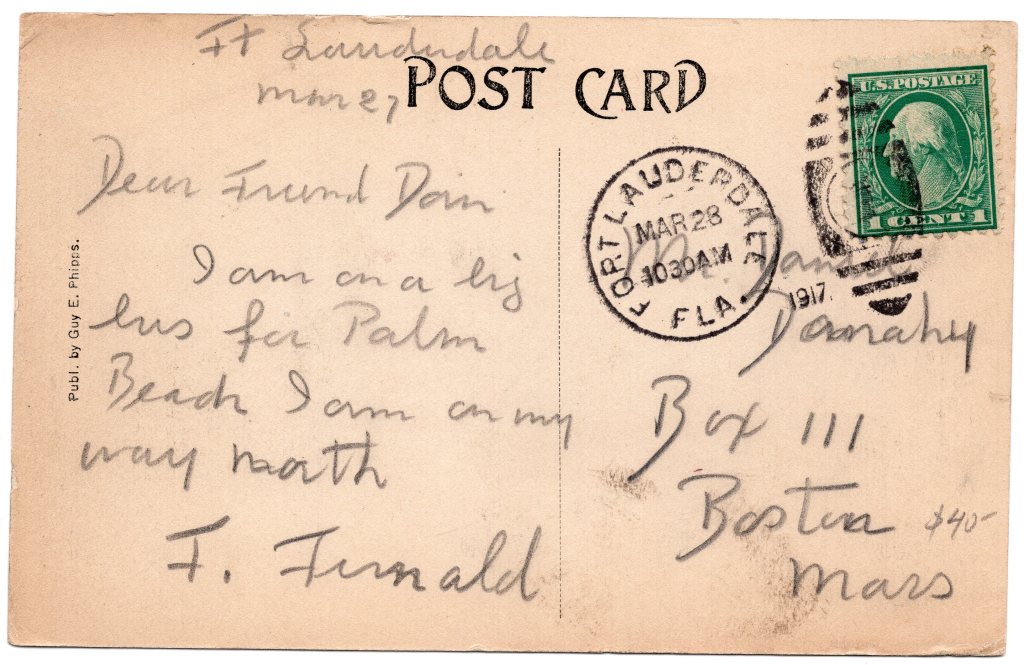 Ft Lauderdale
Mar 27
POST CARD
Dear Friend Dan
I am on a big
bus for Palm
Beach I am on my
way north
F. Fernald
Publ. by Guy E. Phipps.
FORT LAUDERDALE
MAR 28
1030AM
FLA.
1917.
U.S. POSTAGE
1 CENT 1
Mr. Daniel
Danahy
Box 111
Boston
Mass
$40-